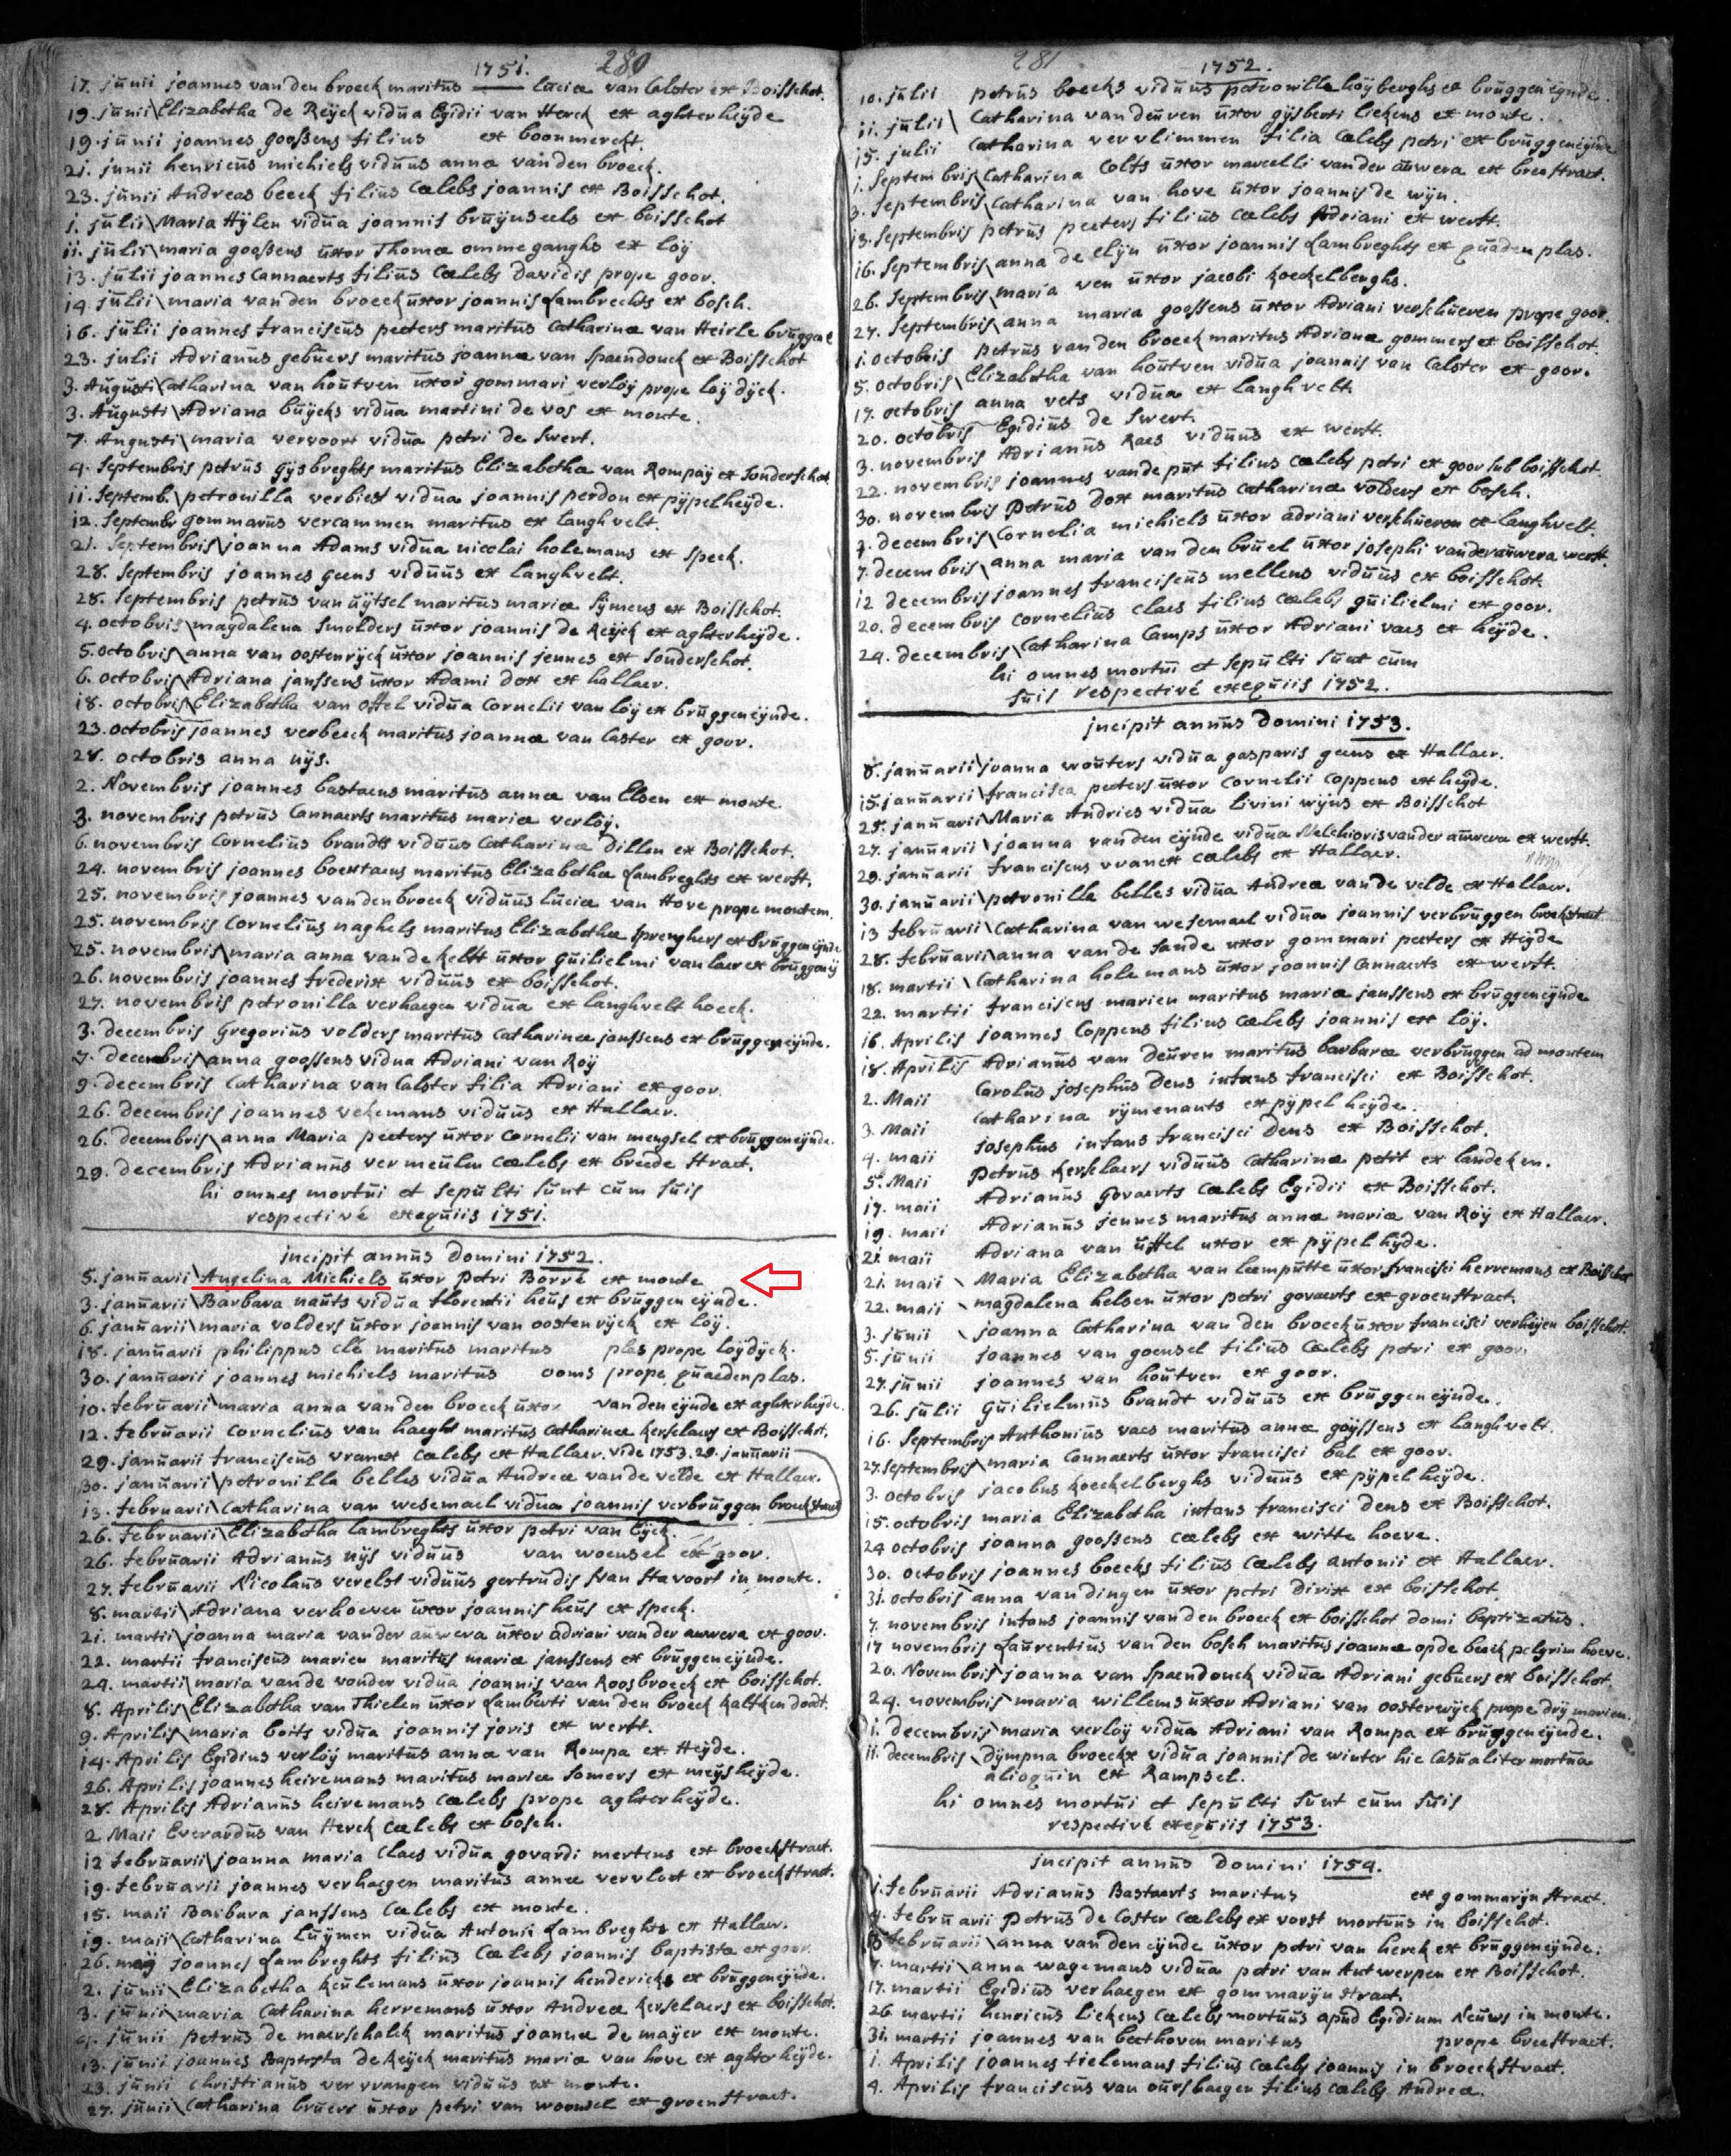 1751. 280
17. jūnii joannes van den broeck maritūs —— lūciæ van Calster ex Boisschot.
19. jūnii\Elizabetha de Reÿck vidūa Egidii van Herck ex aghterheÿde
19. jūnii joannes goossens filius ex boonmerckt.
21. junii henricūs michiels vidūūs annæ van den broeck.
23. jūnii Andreas beeck filiūs Cælebs joannis ex Boisschot.
1. jūlii\Maria Hÿlen vidūa joannis brūÿnseels ex boisschot
11. jūlii\maria goossens ūxor Thomæ ommeganghs ex loÿ
13. jūlii joannes Cannaerts filiūs Cælebs davidis prope goor.
14. jūlii\maria van den broeck ūxor joannis Lambrechts ex bosch.
16. jūlii joannes franciscūs peeters maritus Catharinæ van Heirle brūgge
23. julii Adrianūs gebūers maritūs joannæ van Spaendonck ex Boisschot
3. Aūgūsti\Catharina van hoūtven ūxor gommari verloÿ prope loÿ dÿck.
3. Aūgūsti\Adriana būÿcks vidūa martini de vos ex monte.
7. Augusti\maria vervoort vidūa petri de Swert.
4. Septembris petrūs gÿsbreghts maritūs Elizabethæ van Rompaÿ ex Sonderschot
11. Septemb.\petronilla verbiest vidūa joannis perdon ex pÿpelheÿde.
12. Septembr gommarūs vercammen maritus ex langhvelt.
21. Septembris\joanna Adams vidūa nicolai holemans ex Speck.
28. Septembris joannes geens vidūūs ex langhvelt.
28. Septembris petrūs van ūÿtsel maritūs mariæ Sÿmens ex Boisschot.
4. octobris\magdalena Smolders ūxor joannis de Reÿck ex aghterheÿde.
5. octobris\anna van oostenrÿck ūxor joannis jennes ex Sonderschot.
6. octobris\Adriana janssens ūxor Adami dox ex hallaer.
18. octobris\Elizabetha van Ossel vidūa Cornelii van loÿ ex brūggeneÿnde.
23. octobris joannes verbeeck maritūs joannæ van Caster ex goor.
28. octobris anna nÿs.
2. Novembris joannes bastaens maritūs annæ van Elsen ex monte
3. novembris petrūs Cannaerts maritus mariæ verloÿ.
6. novembris Corneliūs brandts vidūūs Catharinæ Dillen ex Boisschot.
24. novembris joannes boextaens maritūs Elizabethæ Lambreghts ex werft.
25. novembris joannes van den broeck vidūūs lūciæ van Hove prope montem.
25. novembris Corneliūs naghels maritus Elizabethæ Sprenghers ex brūggeneÿnde
25. novembris\maria anna van de kelft ūxor gūilielmi van laer ex brūggeneÿ
26. novembris joannes frederix vidūūs ex boisschot.
27. novembris petronilla verhaegen vidūa ex langhvelt hoeck.
3. decembris Gregoriūs volders maritūs Catharinæ janssens ex brūggeneÿnde.
7. decembris\anna goossens vidua Adriani van Roÿ
9. decembris Catharina van Calster filia Adriani ex goor.
26. decembris joannes vekemans vidūūs ex Hallaer.
26. decembris\anna Maria peeters ūxor Cornelii van mengsel ex brūggeneÿnde.
29. decembris Adrianūs vermeūlen cælebs ex breede straet.
hi omnes mortūi et sepūlti sūnt cūm sūis
respectivé exeqūiis 1751.
incipit annūs domini 1752.
5. janūarii\Angelina Michiels ūxor petri Borré ex monte
3. janūarii\Barbara naūts vidūa florentii heūs ex brūggeneÿnde.
6. janūarii\maria volders ūxor joannis van oostenrÿck ex loÿ.
18. janūarii philippus clé maritus maritus ples prope loÿdÿck.
30. janūarii joannes michiels maritūs ooms prope qūaedenplas.
10. febrūarii\maria anna van den broeck ūxor van den eÿnde ex aghterheÿde.
12. febrūarii Corneliūs van haeght maritūs Catharinæ kerselaers ex Boisschot.
29. janūarii franciscūs vranex cælebs ex Hallaer. vide 1753. 29. janūarii
30. janūarii\petronilla belles vidūa Andreæ van de velde ex Hallaer.
13. februarii\Catharina van wesemael vidua joannis verbrūggen broeckstraet
26. februarii\Elizabetha lambreghts ūxor petri van Eÿck.
26. februarii Adrianūs nÿs vidūūs van woensel ex goor.
27. februarii Nicolaūs verelst vidūūs gertrūdis van Stavoort in monte.
8. martii\Adriana verhoeven ūxor joannis heūs ex Speck.
21. martii\joanna maria vander aūwera ūxor adriani van der auwera ex goor.
22. martii franciscūs marien maritūs mariæ janssens ex brūggeneÿnde.
24. martii\maria vande vonder vidūa joannis van Roosbroeck ex boisschot.
8. Aprilis\Elizabetha van Thielen ūxor Lamberti van den broeck kaltken dodt.
9. Aprilis\maria boits vidūa joannis joris ex werft.
14. Aprilis Egidius verloÿ maritūs annæ van Rompa ex Heÿde.
26. Aprilis joannes heiremans maritus mariæ Somers ex meÿsheÿde.
28. Aprilis Adrianūs heiremans cælebs prope aghterheÿde.
2 Maii Everardūs van Herck cælebs ex bosch.
12 februarii\joanna maria Claes vidūa govardi mertens ex broeckstraet.
19. februarii joannes verhaegen maritūs annæ vervloet ex broeckstraet.
15. maii Barbara janssens Cælebs ex monte.
19. maii\Catharina Lūÿmen vidūa Antonii Lambreghts ex Hallaer.
26. maÿ joannes Lambreghts filiūs Cælebs joannis baptista ex goor.
2. jūnii\Elizabetha keūlemans ūxor joannis hendericks ex brūggeneÿnde.
3. jūnii\maria Catharina herremans ūxor Andreæ kerselaers ex boisschot.
4. jūnii petrūs de maerschalck maritūs joannæ de maÿer ex monte.
13. jūnii joannes Baptista de Reÿck maritūs mariæ van hove ex aghterheÿde.
23. jūnii Christianūs vervrangen vidūūs ex monte.
27. jūnii\Catharina brūers ūxor petri van woensel ex groenstraet.
281 1752.
10. jūlii petrūs boecks vidūūs petronillæ hoÿberghs ex brūggeneÿnde.
11. jūlii\Catharina van deūren ūxor gÿsberti liekens ex monte.
15. julii Catharina vervlimmen filia cælebs petri ex brūggeneÿnde
1. Septembris\Catharina Colts ūxor marcelli vander aūwera ex breestraet.
3. Septembris\Catharina van hove ūxor joannis de wÿn.
13. Septembris petrūs peeters filiūs cælebs Adriani ex werft.
16. Septembris\anna de Clÿn ūxor joannis Lambreghts ex qūaden plas.
26. Septembris\maria ven ūxor jacobi koeckelberghs.
27. Septembris\anna maria goossens ūxor Adriani verschūeren prope goor.
1. octobris petrūs van den broeck maritus Adrianæ gommers ex boisschot
5. octobris\Elizabetha van hoūtven vidūa joannis van Calster ex goor.
17. octobris anna vets vidūa ex langhvelt.
20. octobris Egidiūs de Swert.
3. novembris Adrianūs Raes vidūūs ex werft.
22. novembris joannes vande pūt filiūs cælebs petri ex goor sub boisschot.
30. novembris petrūs dox maritūs Catharinæ volders ex bosch.
7. decembris\Cornelia michiels ūxor adriani verschūeren ex langhvelt.
7. decembris\anna maria van den brūel ūxor josephi vander aūwera werft.
12 decembris joannes franciscūs mellens vidūūs ex boisschot
20. decembris corneliūs claes filiūs cælebs gūilielmi ex goor.
24. decembris\Catharina Camps ūxor Adriani vaes ex heÿde.
hi omnes mortūi et sepūlti sūnt cūm
sūis respectivé exeqūiis 1752.
incipit annūs domini 1753.
8. janūarii\joanna woūters vidūa gasparis geens ex Hallaer.
15. janūarii\francisca peeters ūxor Cornelii Coppens ex heÿde.
25. janūarii\Maria Andries vidūa livini wÿns ex Boisschot
27. janūarii\joanna van den eÿnde vidūa Melchioris vander aūwera ex werft.
29. janūarii franciscus vranex cælebs ex Hallaer.
30. janūarii\petronilla belles vidūa Andreæ van de velde ex Hallaer.
13 febrūarii\Catharina van wesemael vidūa joannis verbrūggen broekstraet
28. febrūarii\anna van de Sande uxor gommari peeters ex Heÿde
18. martii\Catharina holemans ūxor joannis Cannaerts ex werft.
22. martii franciscus marien maritus mariæ janssens ex brūggeneÿnde
16. Aprilis joannes Coppens filius cælebs joannis ex loÿ.
18. Aprilis Adrianūs van deūren maritūs barbaræ verbrūggen ad montem
2. Maii Carolūs josephūs Dens infans francisci ex Boisschot.
3. Maii Catharina rÿmenants ex pÿpelheÿde.
4. maii josephus infans francisci Dens ex Boisschot.
5. Maii petrūs kerselaers vidūūs Catharinæ petit ex landeken.
17. maii Adrianūs govaerts Cælebs Egidii ex Boisschot.
19. maii Adrianūs jennes maritus annæ mariæ van Roÿ ex Hallaer.
21. maii Adriana van ūssel uxor ex pÿpelhÿde.
21. maii\Maria Elizabetha van leempūtte ūxor francisci herremans ex Boisschot
22. maii\magdalena helsen ūxor petri govaerts ex groenstraet.
3. jūnii\joanna Catharina van den broeck ūxor francisci verheÿen boisschot.
5. jūnii joannes van goensel filius Cælebs petri ex goor.
27. jūnii joannes van hoūtven ex goor.
26. jūlii gūilielmūs brandt vidūūs ex brūggeneÿnde.
16. Septembris Anthoniūs vaes maritūs annæ goÿssens ex langhvelt.
27. Septembris\maria Connaerts ūxor francisci bal ex goor.
3. octobris jacobus koeckelberghs vidūūs ex pÿpelheÿde.
15. octobris maria Elizabetha infans francisci dens ex Boisschot.
24 octobris joanna goossens cælebs ex witte hoeve.
30. octobris joannes boecks filiūs cælebs antonii ex Hallaer.
31. octobris anna van dingen ūxor petri dirix ex boisschot
7. novembris infans joannis van den broeck ex boisschot domi baptizatūs.
17 novembris Laūrentiūs van den bosch maritus joannæ op de beeck pelgrim hoeve.
20. Novembris\joanna van Spaendonck vidūa Adriani gebūers ex boisschot.
24. novembris\maria willems ūxor Adriani van oosterwÿck prope drÿ marien.
1. decembris\maria verloÿ vidūa Adriani van Rompa ex brūggeneÿnde.
11. decembris\dÿmpna broeckx vidūa joannis de winter hic Casūaliter mortūa
alioqūin ex Rampsel.
hi omnes mortūi et sepūlti sūnt cūm sūis
respectivé exeqūiis 1753.
incipit annūs domini 1754.
1. febrūarii Adrianūs Bastaerts maritūs ex gommarÿn straet.
4. febrūarii petrūs de Coster cælebs ex vorst mortūūs in boisschot.
febrūarii\anna van den eÿnde ūxor petri van herck ex brūggeneÿnde.
7. martii\anna wagemans vidūa petri van Antwerpen ex Boisschot.
17. martii Egidiūs verhaegen ex gommarÿn straet.
26 martii henricūs liekens cælebs mortūūs apūd Egidium Neūws in monte.
31. martii joannes van beethoven maritus prope breestraet.
1. Aprilis joannes tielemans filiūs cælebs joannis in broeckstraet.
4. Aprilis franciscūs van oūrshaegen filius cælebs Andreæ.